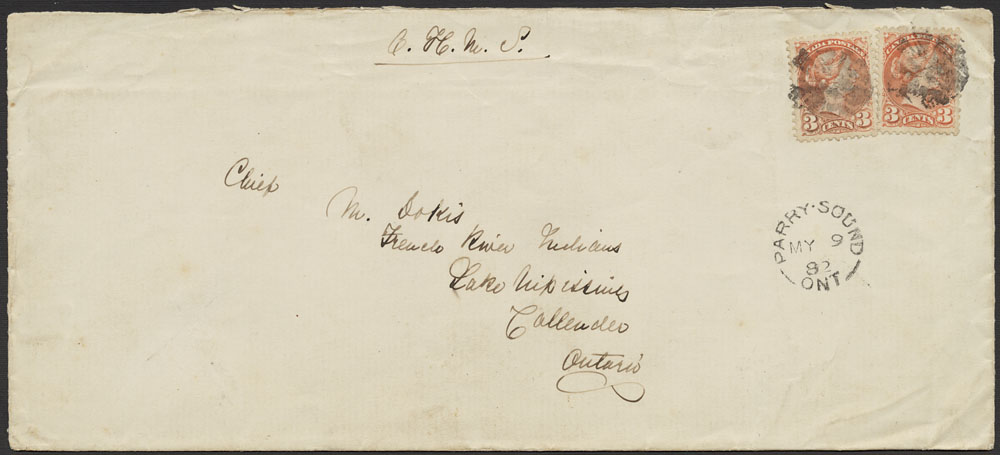 O. H. M. S.
CANADA POSTAGE
3 CENTS 3
3 CENTS 3
Chief
M. Dokis
French River Indians
Lake Nipissing
Callender
Ontario
PARRY·SOUND
MY 9
82
ONT